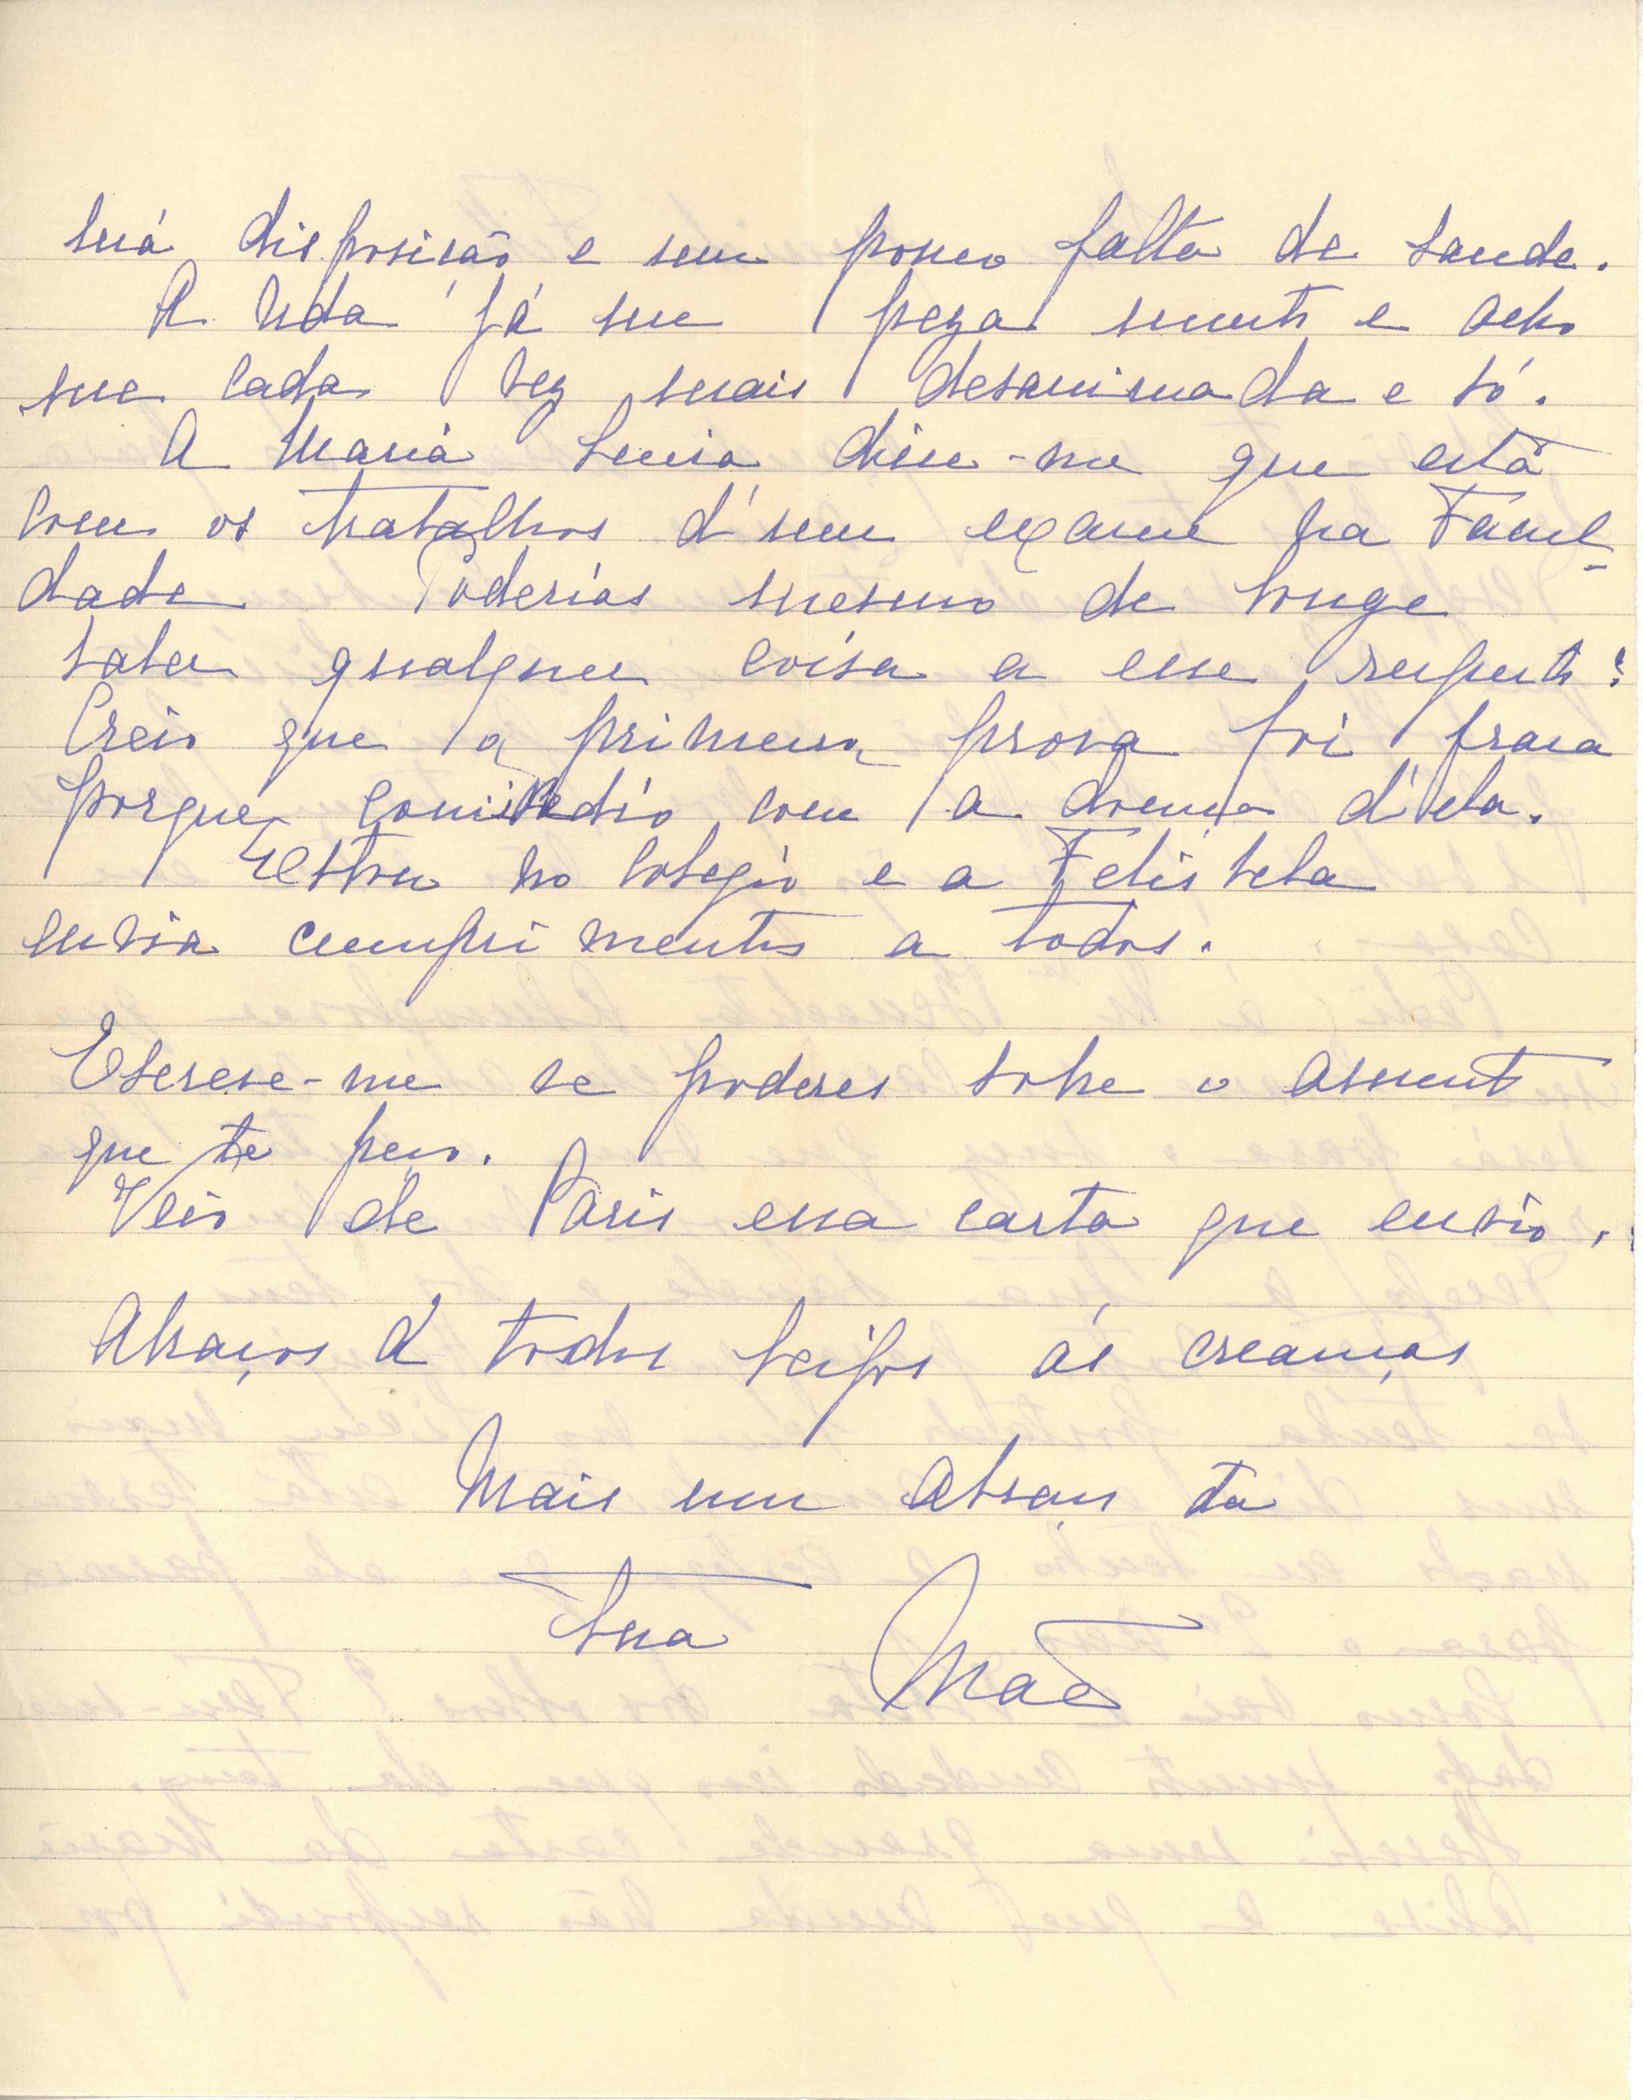 má disposição e um pouco falta de saude.
A vida já me peza muito e acho
me cada vez mais desanimada e só.
A Maria Lucia disse-me que está
com os trabalhos d'um exame na Facul-
dade Poderias mesmo de longe
saber qualquer coisa a esse respeito?
Creio que a primeira prova foi fraca
porque coincidio com a doença d'ela.
Estou no Colegio e a Felisbela
envia cumprimentos a todos.
Escreve-me se poderes sobre o assunto
que te peço.
Veio de Paris essa carta que envio.
Abraços á todos beijos ás creanças
Mais um abraço da
tua Mãe